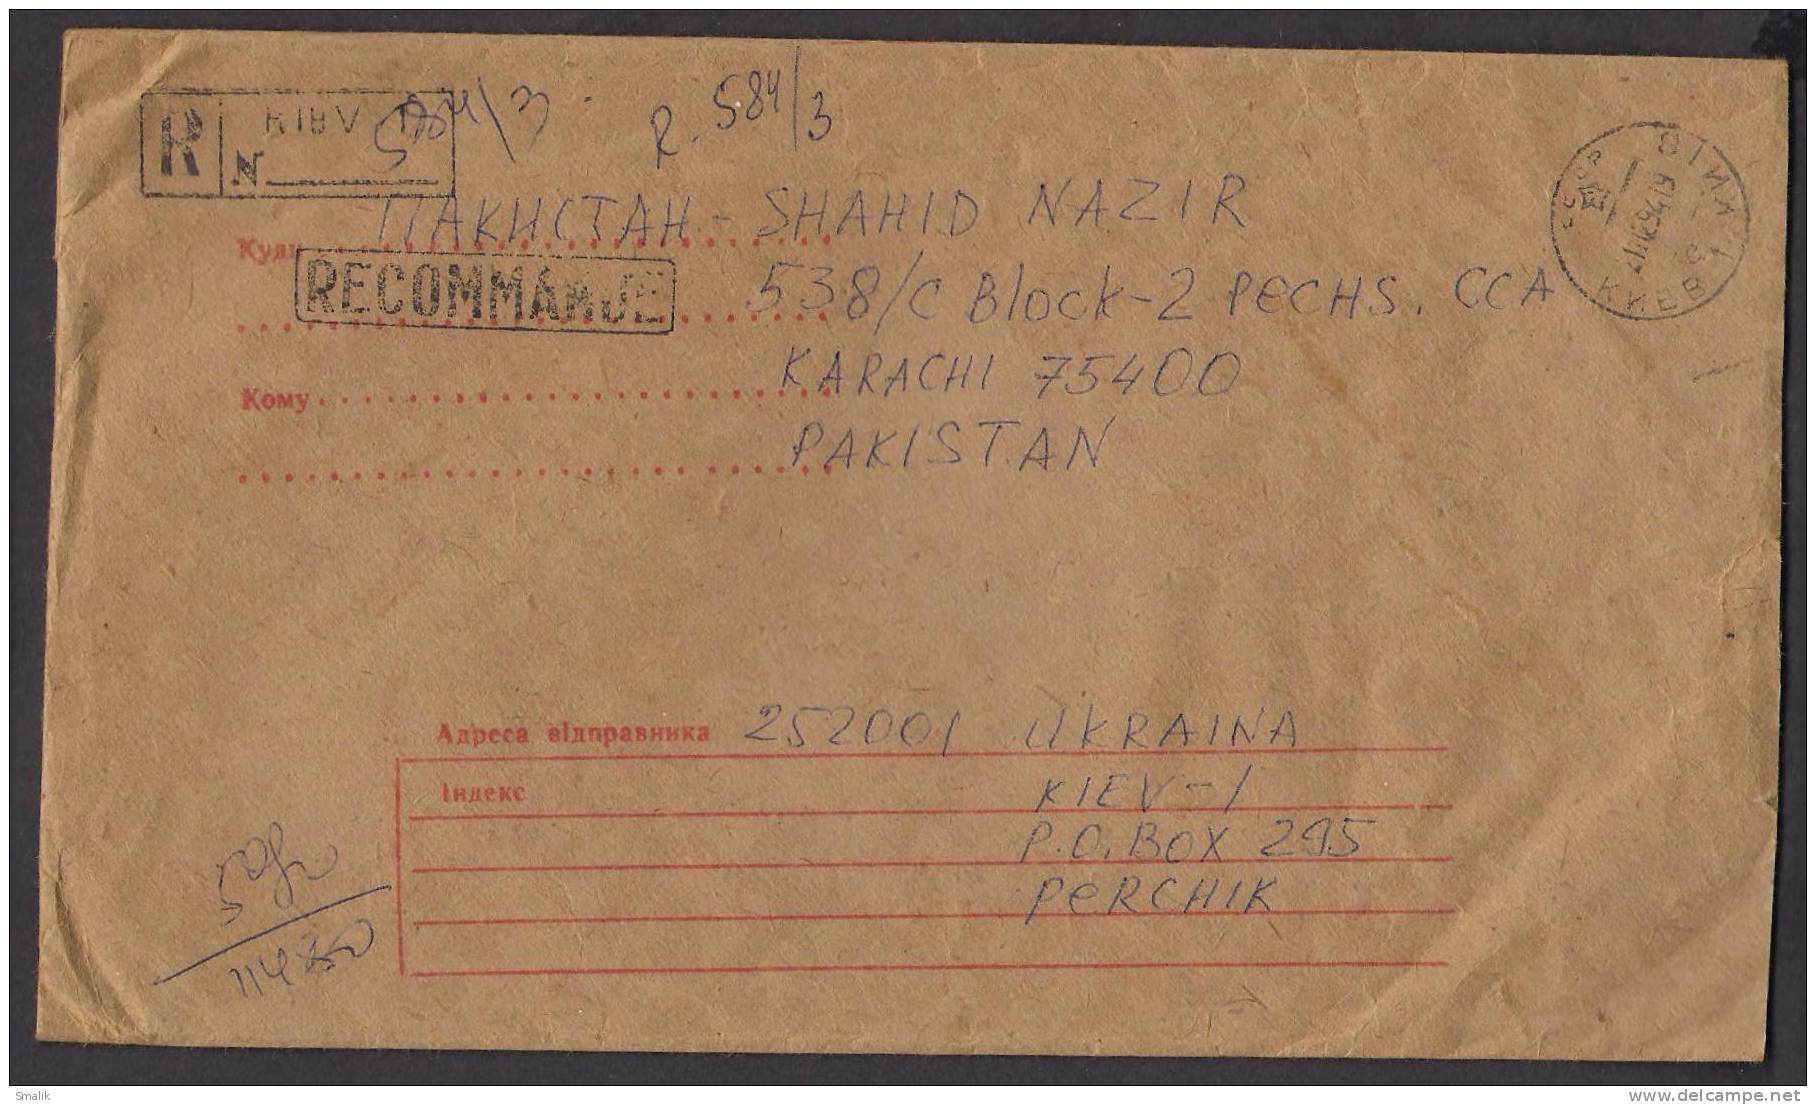 R N KIEV 1
584/3
R-584/3
ПАКИСТАН - SHAHID NAZIR
Куди
RECOMMANDE
538/C Block-2 PECHS. CCA
Кому
KARACHI 75400
PAKISTAN
КИЇВ 1
КИЕВ
Адреса відправника 252001 UKRAINA
Індекс
KIEV-1
P.O. BOX 295
PERCHIK
11480
Smalik
www.delcampe.net